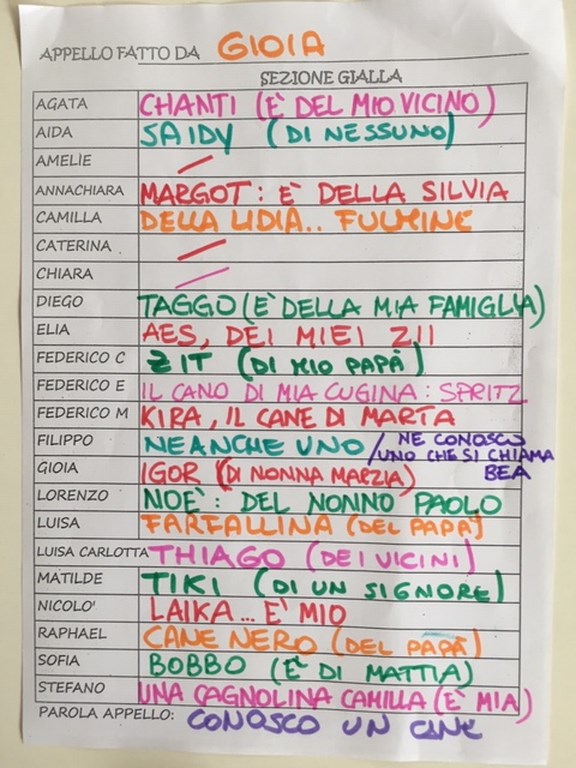 APPELLO FATTO DA GIOIA
SEZIONE GIALLA
AGATA CHANTI (E' DEL MIO VICINO)
AIDA SAIDY (DI NESSUNO)
AMELIE
ANNACHIARA MARGOT: E' DELLA SILVIA
CAMILLA DELLA LIDIA.. FULMINE
CATERINA
CHIARA
DIEGO TAGGO (E' DELLA MIA FAMIGLIA)
ELIA AES, DEI MIEI ZII
FEDERICO C ZIT (DI MIO PAPÀ)
FEDERICO E IL CANO DI MIA CUGINA: SPRITZ
FEDERICO M KIRA, IL CANE DI MARTA
FILIPPO NEANCHE UNO / NE CONOSCO
UNO CHE SI CHIAMA
BEA
GIOIA IGOR (DI NONNA MARZIA)
LORENZO NOE': DEL NONNO PAOLO
LUISA FARFALLINA (DEL PAPÀ)
LUISA CARLOTTA THIAGO (DEI VICINI)
MATILDE TIKI (DI UN SIGNORE)
NICOLO' LAIKA... E' MIO
RAPHAEL CANE NERO (DEL PAPÀ)
SOFIA BOBBO (E' DI MATTIA)
STEFANO UNA CAGNOLINA CAMILLA (E' MIA)
PAROLA APPELLO: CONOSCO UN CANE